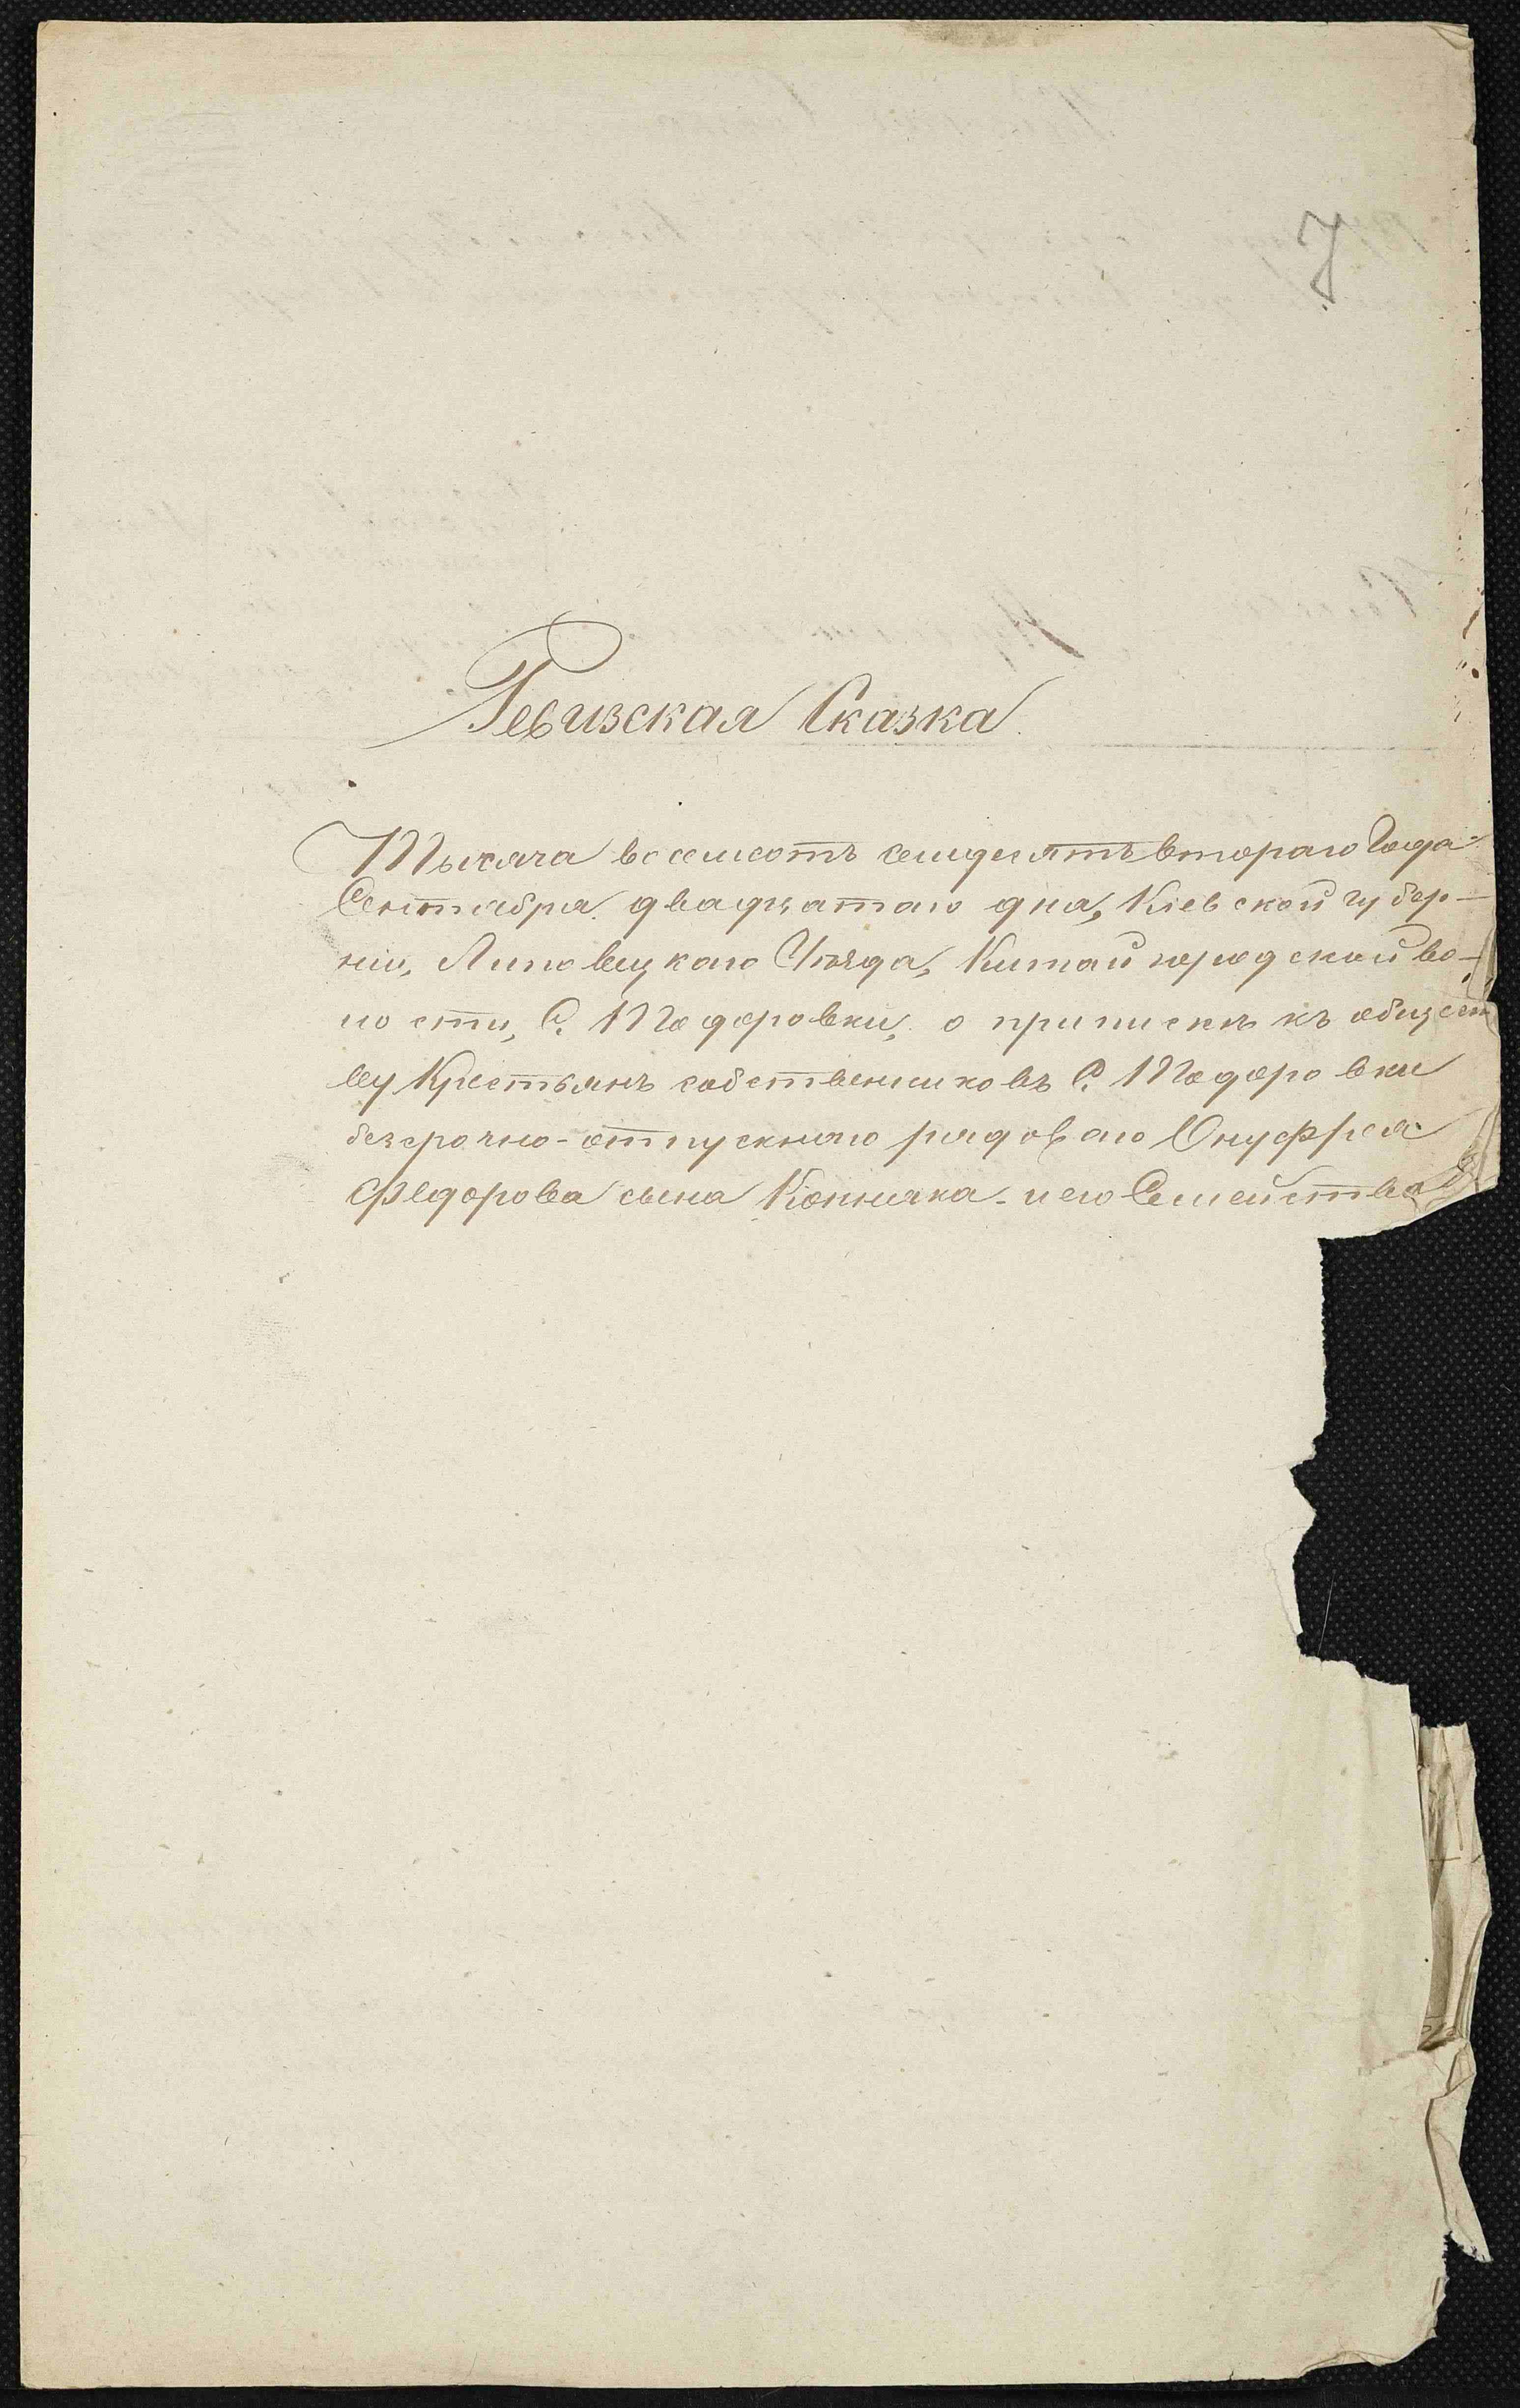 7
Ревизская Сказка
Тысяча восемсотъ семдесятъ втораго Года
Сентября двадцатаго дня, Кіевской губер-
ніи, Липовецкаго Уѣзда, Китайгородской во-
лости, С. Тодоровки, о припискѣ къ общест
ву Крестьянъ собственниковъ С. Тодоровки
безсрочно-отпускнаго рядоваго Онуфрея
Федорова сына Кокняка и его Семейства